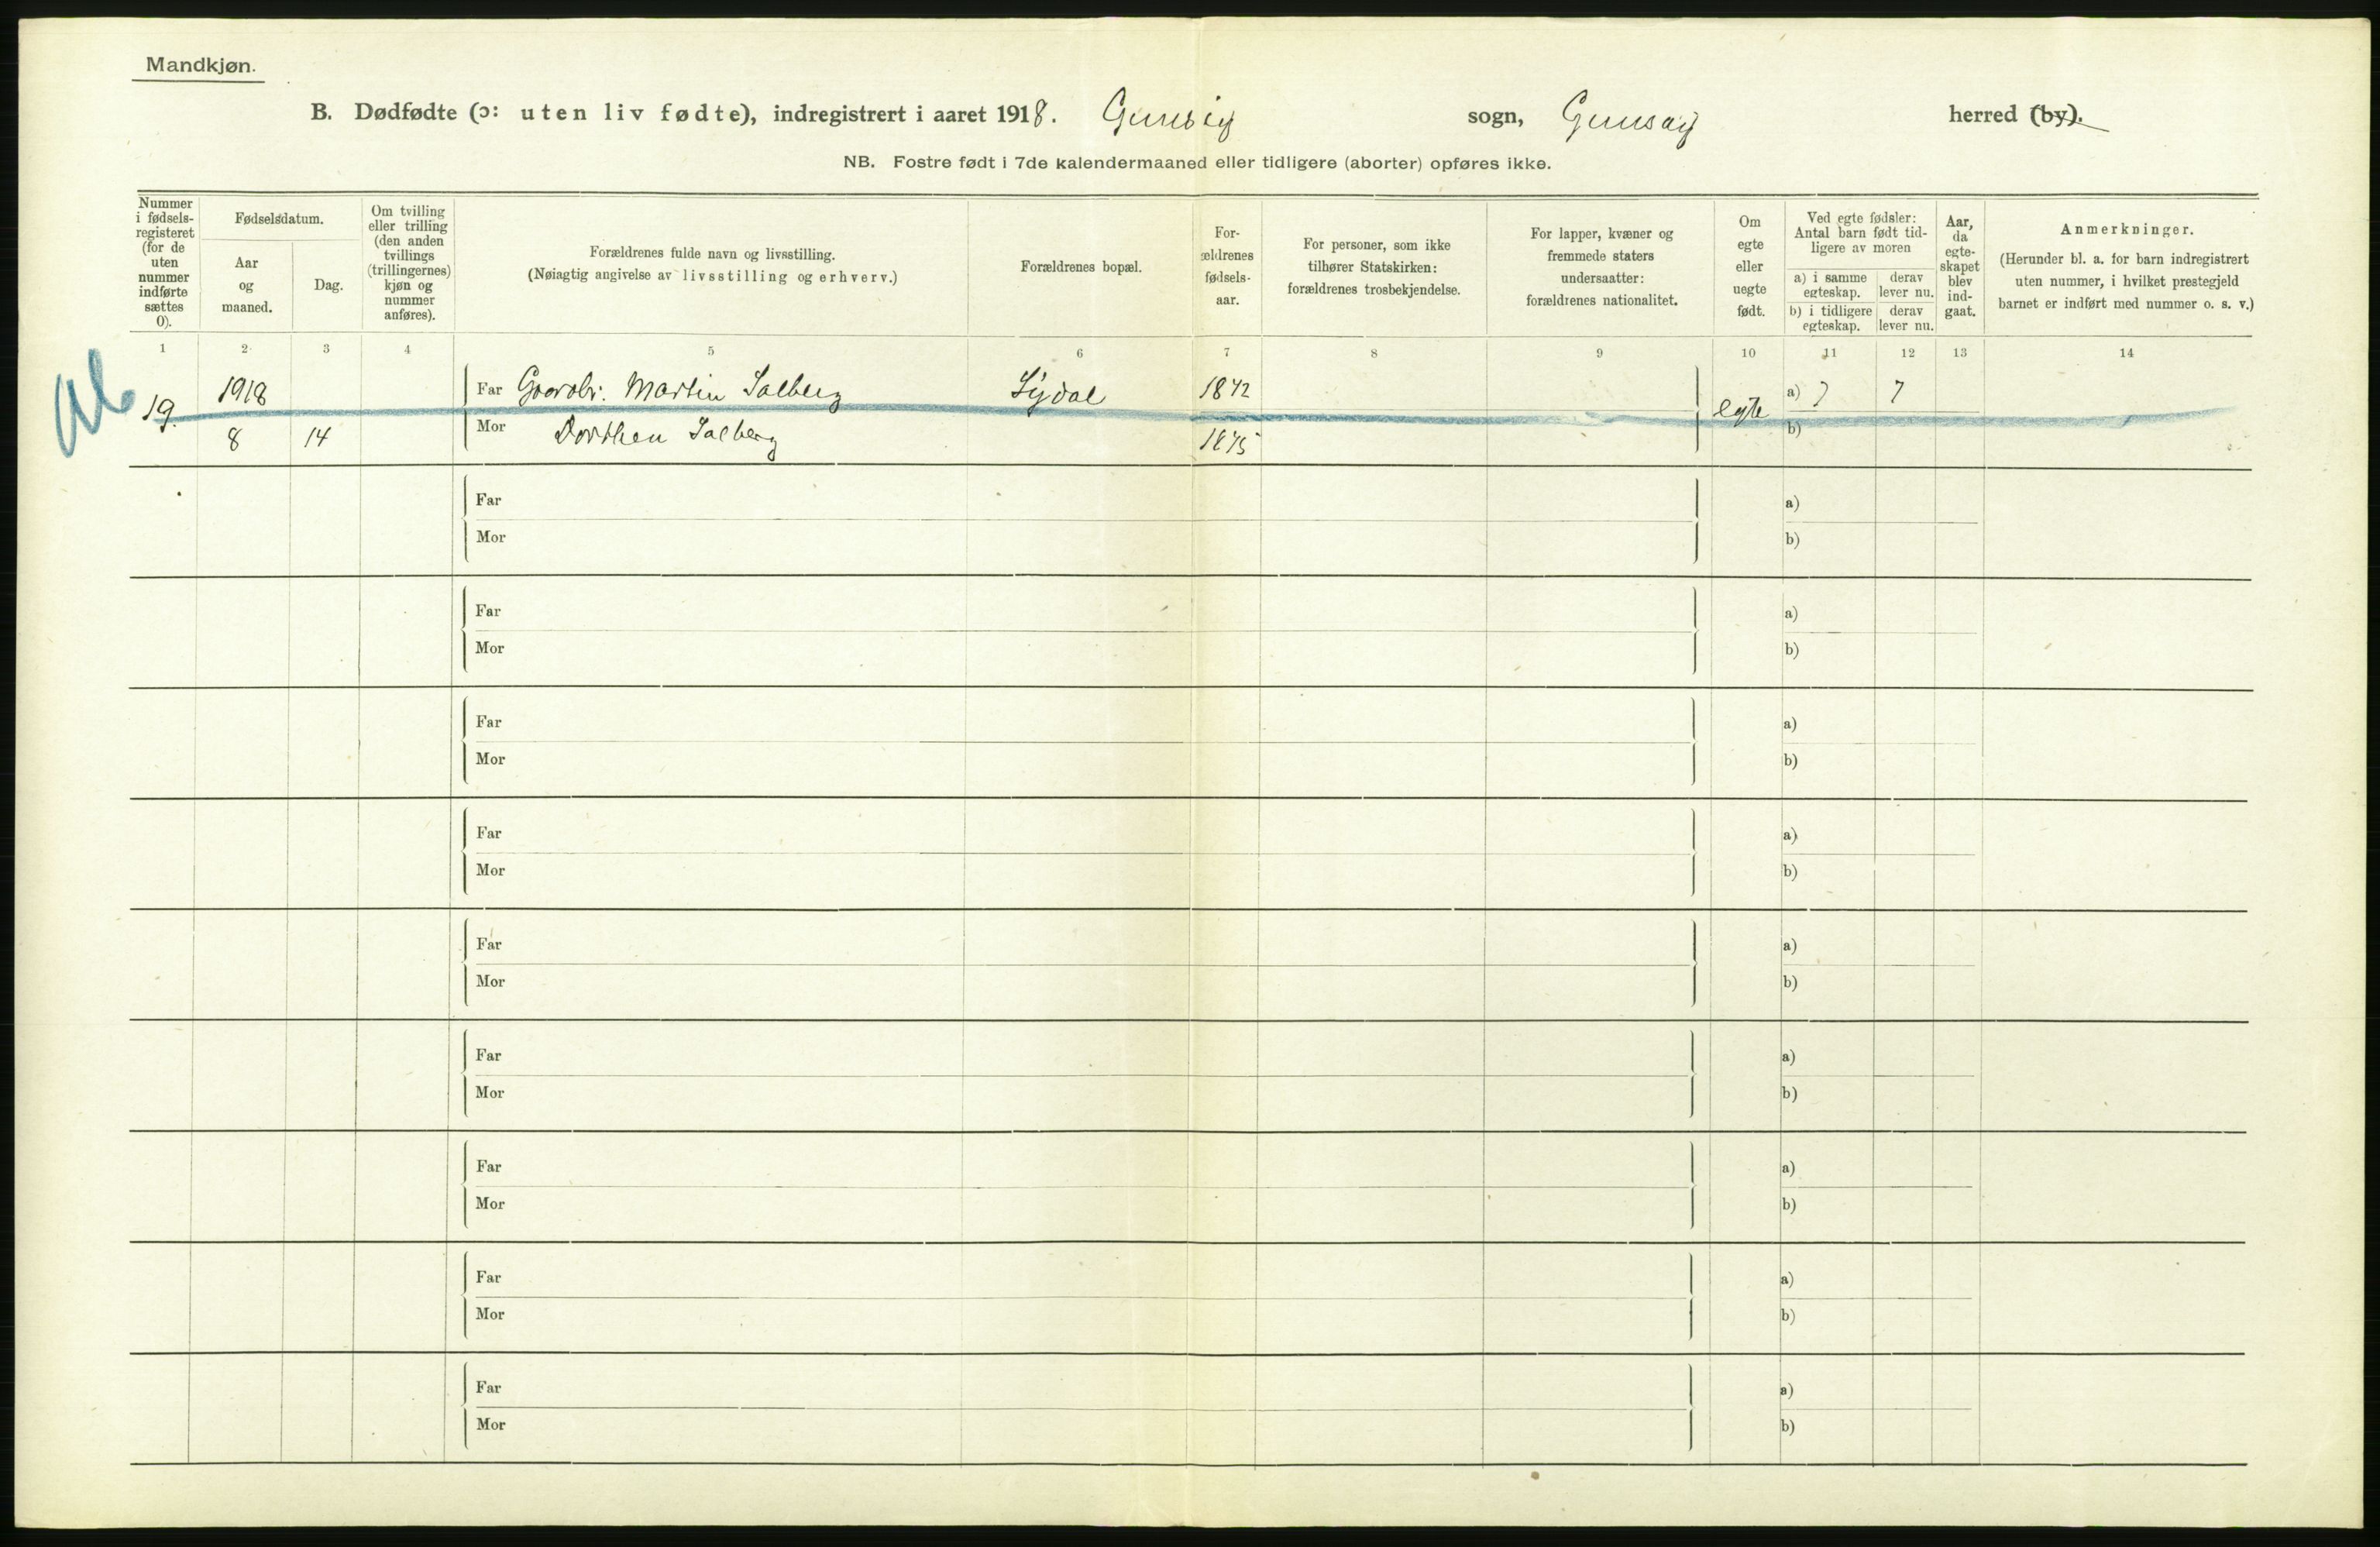 Mandkjøn.
B. Dødfødte (ɔ: uten liv fødte), indregistrert i aaret 1918. sogn, herred (by).
NB. Fostre født i 7de kalendermaaned eller tidligere (aborter) opføres ikke.
Nummer i fødsels-registeret (for de uten nummer indførte sættes 0).
Fødselsdatum.
Aar og maaned.
Dag.
Om tvilling eller trilling (den anden tvillings (trillingernes) kjøn og nummer anføres).
Forældrenes fulde navn og livsstilling.
(Nøiagtig angivelse av livsstilling og erhverv.)
Forældrenes bopæl.
For-ældrenes fødsels-aar.
For personer, som ikke tilhører Statskirken: forældrenes trosbekjendelse.
For lapper, kvæner og fremmede staters undersaatter: forældrenes nationalitet.
Om egte eller uegte født.
Ved egte fødsler: Antal barn født tid-ligere av moren
a) i samme egteskap.
derav lever nu.
b) i tidligere egteskap.
derav lever nu.
Aar, da egte-skapet blev ind-gaat.
Anmerkninger.
(Herunder bl. a. for barn indregistrert uten nummer, i hvilket prestegjeld barnet er indført med nummer o. s. v.)
1 2 3 4 5 6 7 8 9 10 11 12 13 14
19. 1918 Far Gaardbr. Martin Salberg 1872 egte a) 7 7
8 14 Mor Dorthea Salberg 1875 b)
Far a)
Mor b)
Far a)
Mor b)
Far a)
Mor b)
Far a)
Mor b)
Far a)
Mor b)
Far a)
Mor b)
Far a)
Mor b)
Far a)
Mor b)
Far a)
Mor b)